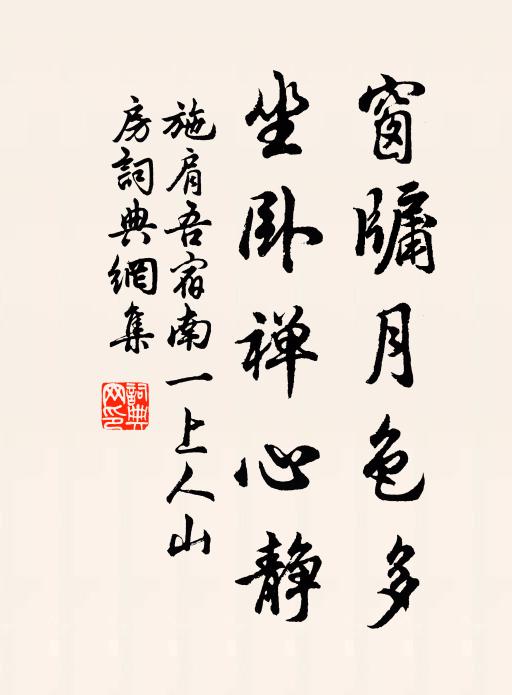 窗牖月色多
坐卧禅心静
施肩吾宿南一上人山
房詞典網集
詞典
网印